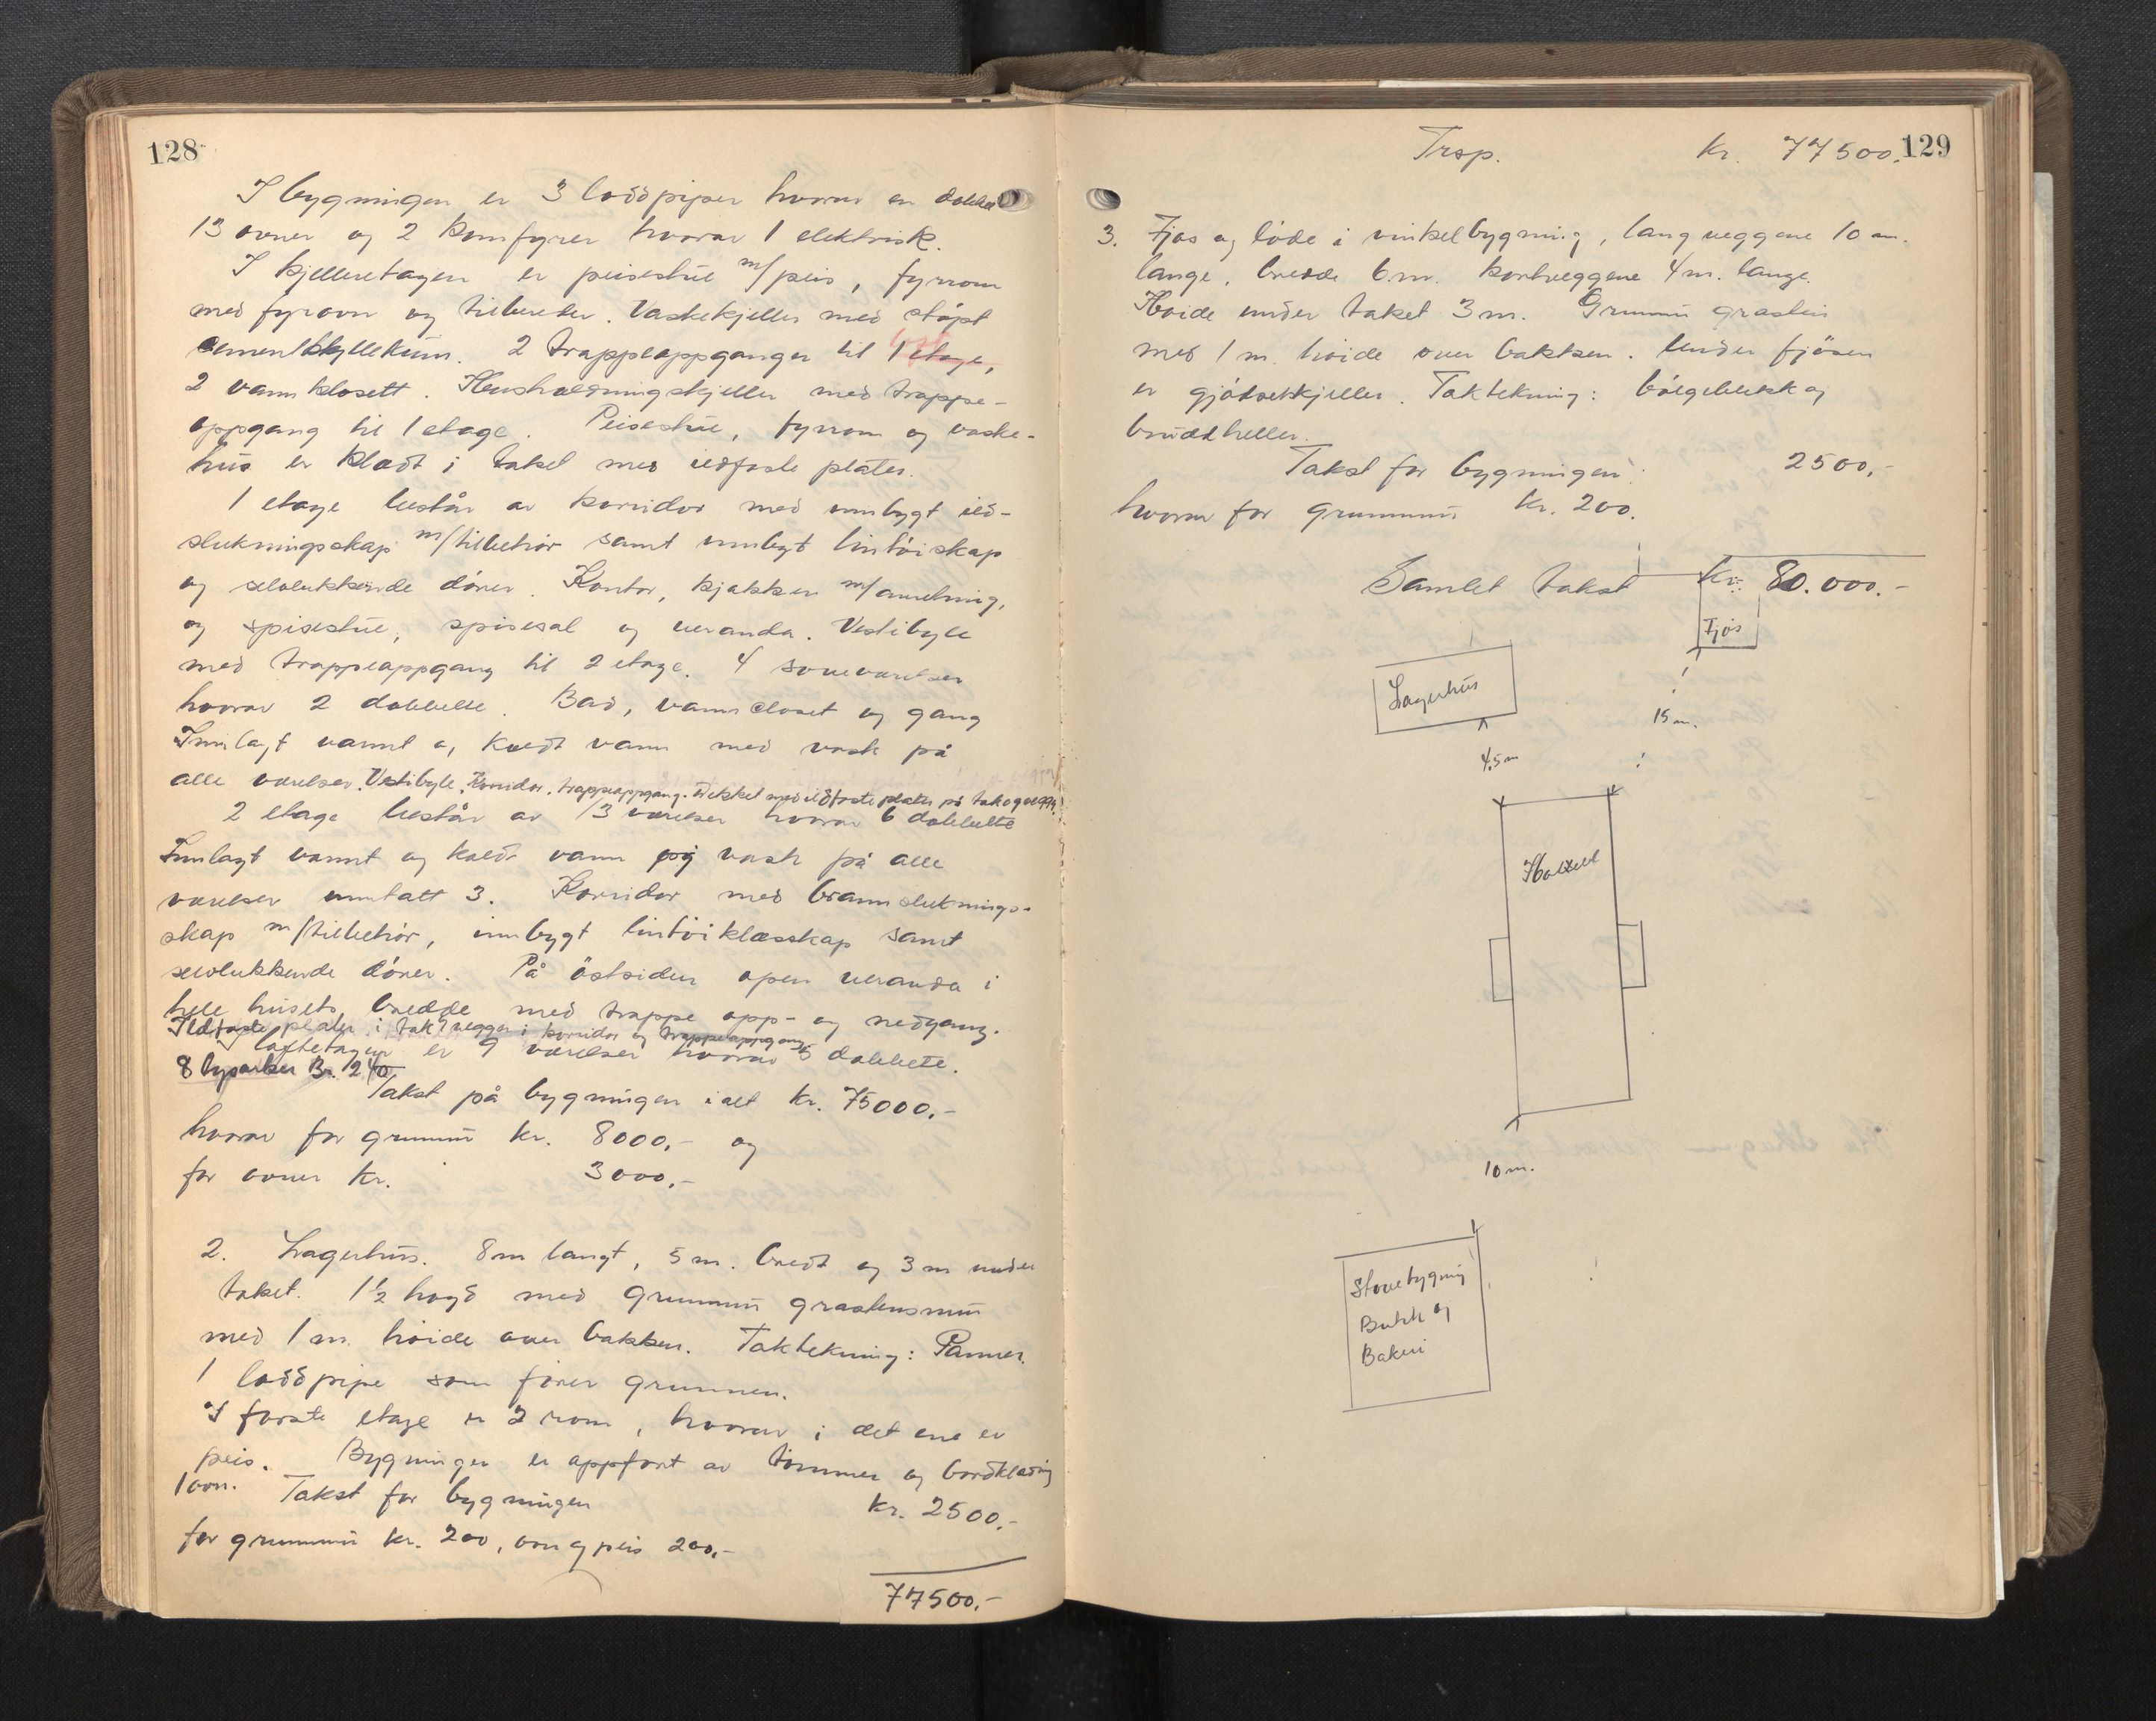 128
I bygningen er 3 loddpiper hvorav en dobbel
13 ovner og 2 komfyrer hvorav 1 elektrisk.
I kjelleretagen er peisestue m/peis, fyrrom
med fyrovn og tilbereder. Vaskekjeller med støpt
cementskyllekum. 2 trappeoppganger til 1 etage,
2 vannklosett. Husholdningskjeller med trappe-
oppgang til 1 etage. Peisestue, fyrrom og vaske-
hus er kledt i taket med ildfaste plater.
1 etage består av korridor med innbygt ild-
slukningsskap m/tilbehör samt innbygt lintöiskap
og selvlukkende dörer. Kontor, kjøkken m/anretning,
og spisestue, spisesal og veranda. Vestibyle
med trappeoppgang til 2 etage. 4 soveværelser
hvorav 2 dobbelte. Bad, vanncloset og gang
Innlagt varmt o, koldt vann med vask på
alle værelser. Vestibyle, Korridor, trappeoppgang. Dekket med ildfaste plater på tak og vegg.
2 etage består av 13 værelser hvorav 6 dobbelte
Innlagt varmt og koldt vann og vask på alle
værelser unntatt 3. Korridor med brannsluknings-
skap m/tilbehör, innbygt lintöiklæsskap samt
selvlukkende dörer. På östsiden open veranda i
hele husets bredde med trappe opp- og nedgang.
Ildfaste plater i tak, vegger i korridor og trappeoppgang
I loftetagen er 9 værelser hvorav 5 dobbelte.
Takst på bygningen i alt kr. 75000.-
hvorav for grunnmur kr. 8000,- og
for ovner kr. 3000,-
2. Lagerhus. 8 m langt, 5 m. bredt og 3 m under
taket. 1½ høgd med grunnmur graastensmur
med 1 m. höide over bakken. Taktekning: Panner.
1 loddpipe som förer grunnen.
I förste etage er 2 rom, hvorav i det ene er
peis. Bygningen er oppfört av tömmer og bordkledning
1 ovn. Takst for bygningen kr. 2500.-
for grunnmur kr. 200, ovn og peis 200.-
77500.-
129
Trsp. kr. 77500.
3. Fjös og löde i vinkelbygning, langveggene 10 m.
lange, bredde 6 m. kortveggene 4 m. lange.
Höide under taket 3 m. Grunnmur grasten
med 1 m. höide over bakken. Under fjösen
er gjödselkjeller. Taktekning: bölgeblekk og
bruddheller.
Takst for bygningen: 2500,-
hvorav for grunnmur kr. 200.
Samlet takst kr. 80.000.-
Fjös
Lagerhus
15 m.
4,5 m
Hotell
10 m.
Stovebygning
Butikk og
Bakeri